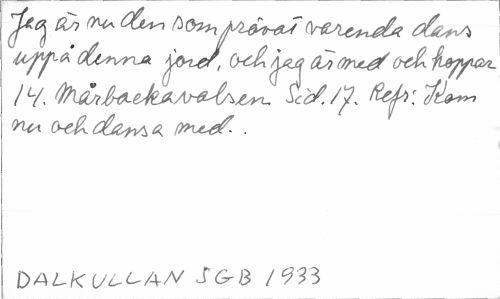 Jag är nu den som prövat varenda dans
uppå denna jord, och jag är med och hoppar
14. Mårbackavalsen. Sid. 17. Refr: Kom
nu och dansa med..
DALKULLAN SGB 1933